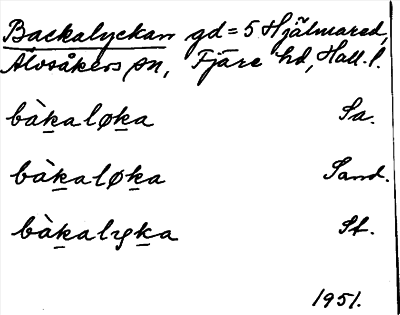 Backalyckan gd = 5 Hjälmared,
Älvsåkers sn, Fjäre hd, Hall. l.
bàk̲aløk̲a Sa.
bàk̲aløk̲a Sand.
bàk̲alyk̲a St.
1951.